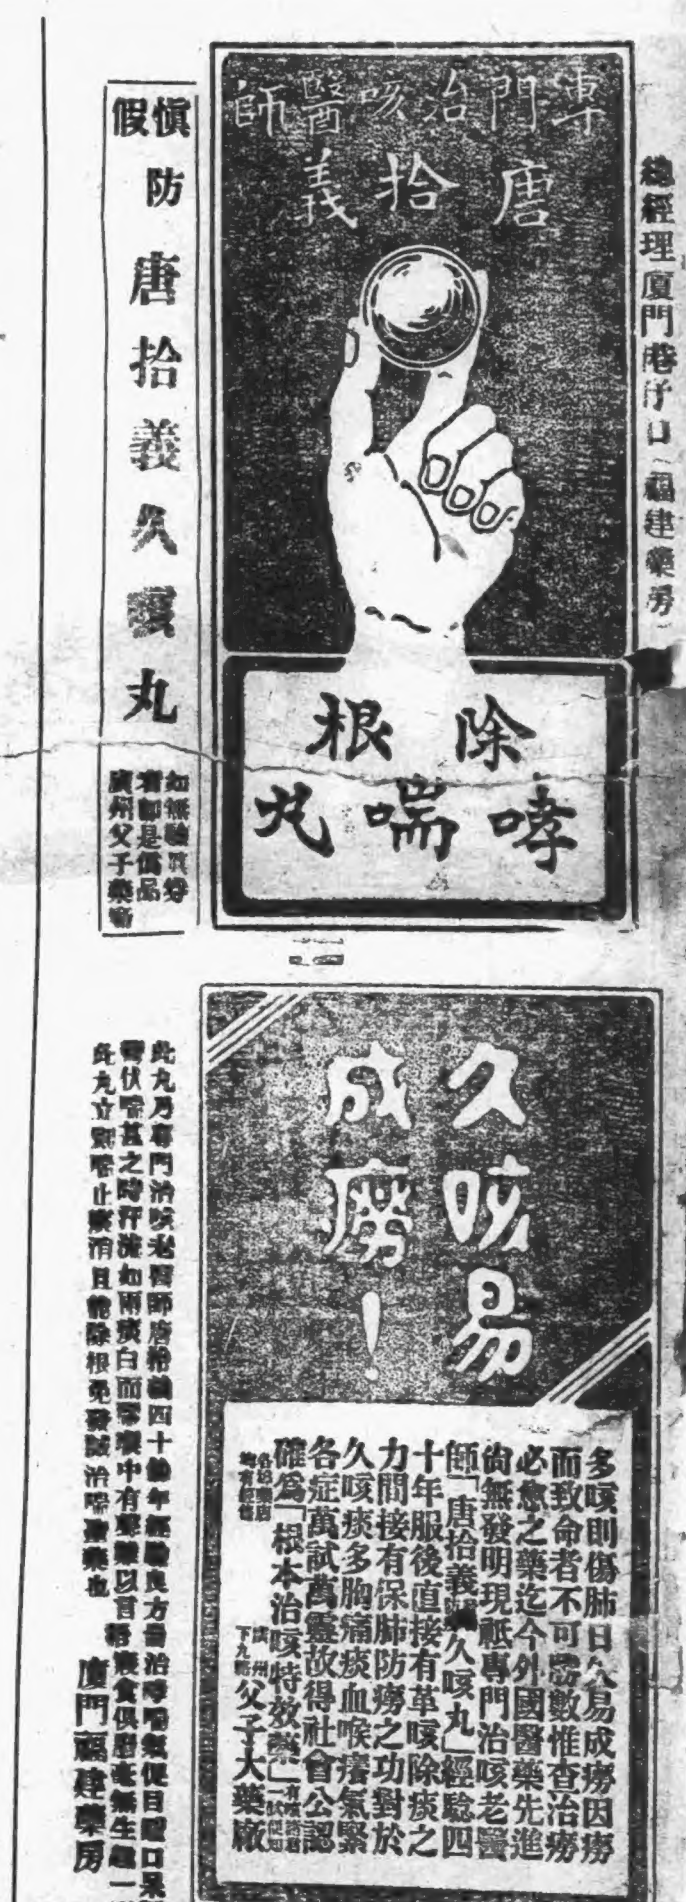 總經理廈門港仔口（福建藥房）
專門治咳醫師
唐拾義
除根
哮喘丸
慎防假
唐拾義久咳丸
如無驗真劵
者即是偽品
廣州父子藥廠
久咳易
成癆！
多咳則傷肺日久易成癆因癆
而致命者不可勝數惟查治癆
必愈之藥迄今外國醫藥先進
尚無發明現祗專門治咳老醫
師「唐拾義久咳丸」經驗四
十年服後直接有革咳除痰之
力間接有保肺防癆之功對於
久咳痰多胸痛痰血喉癢氣緊
各症萬試萬靈故得社會公認
確爲「根本治咳特效藥」
各埠藥房
均有經售
廣州
下九路
父子大藥廠
此丸乃專門治咳老醫師唐拾義四十餘年經驗良方善治哮喘
甚之時汗流如雨痰白而
中有聲難以言語寢食俱廢毫無生趣一
此丸立即喘止痰消且能除根免發誠治喘聖藥也
廈門福建藥房